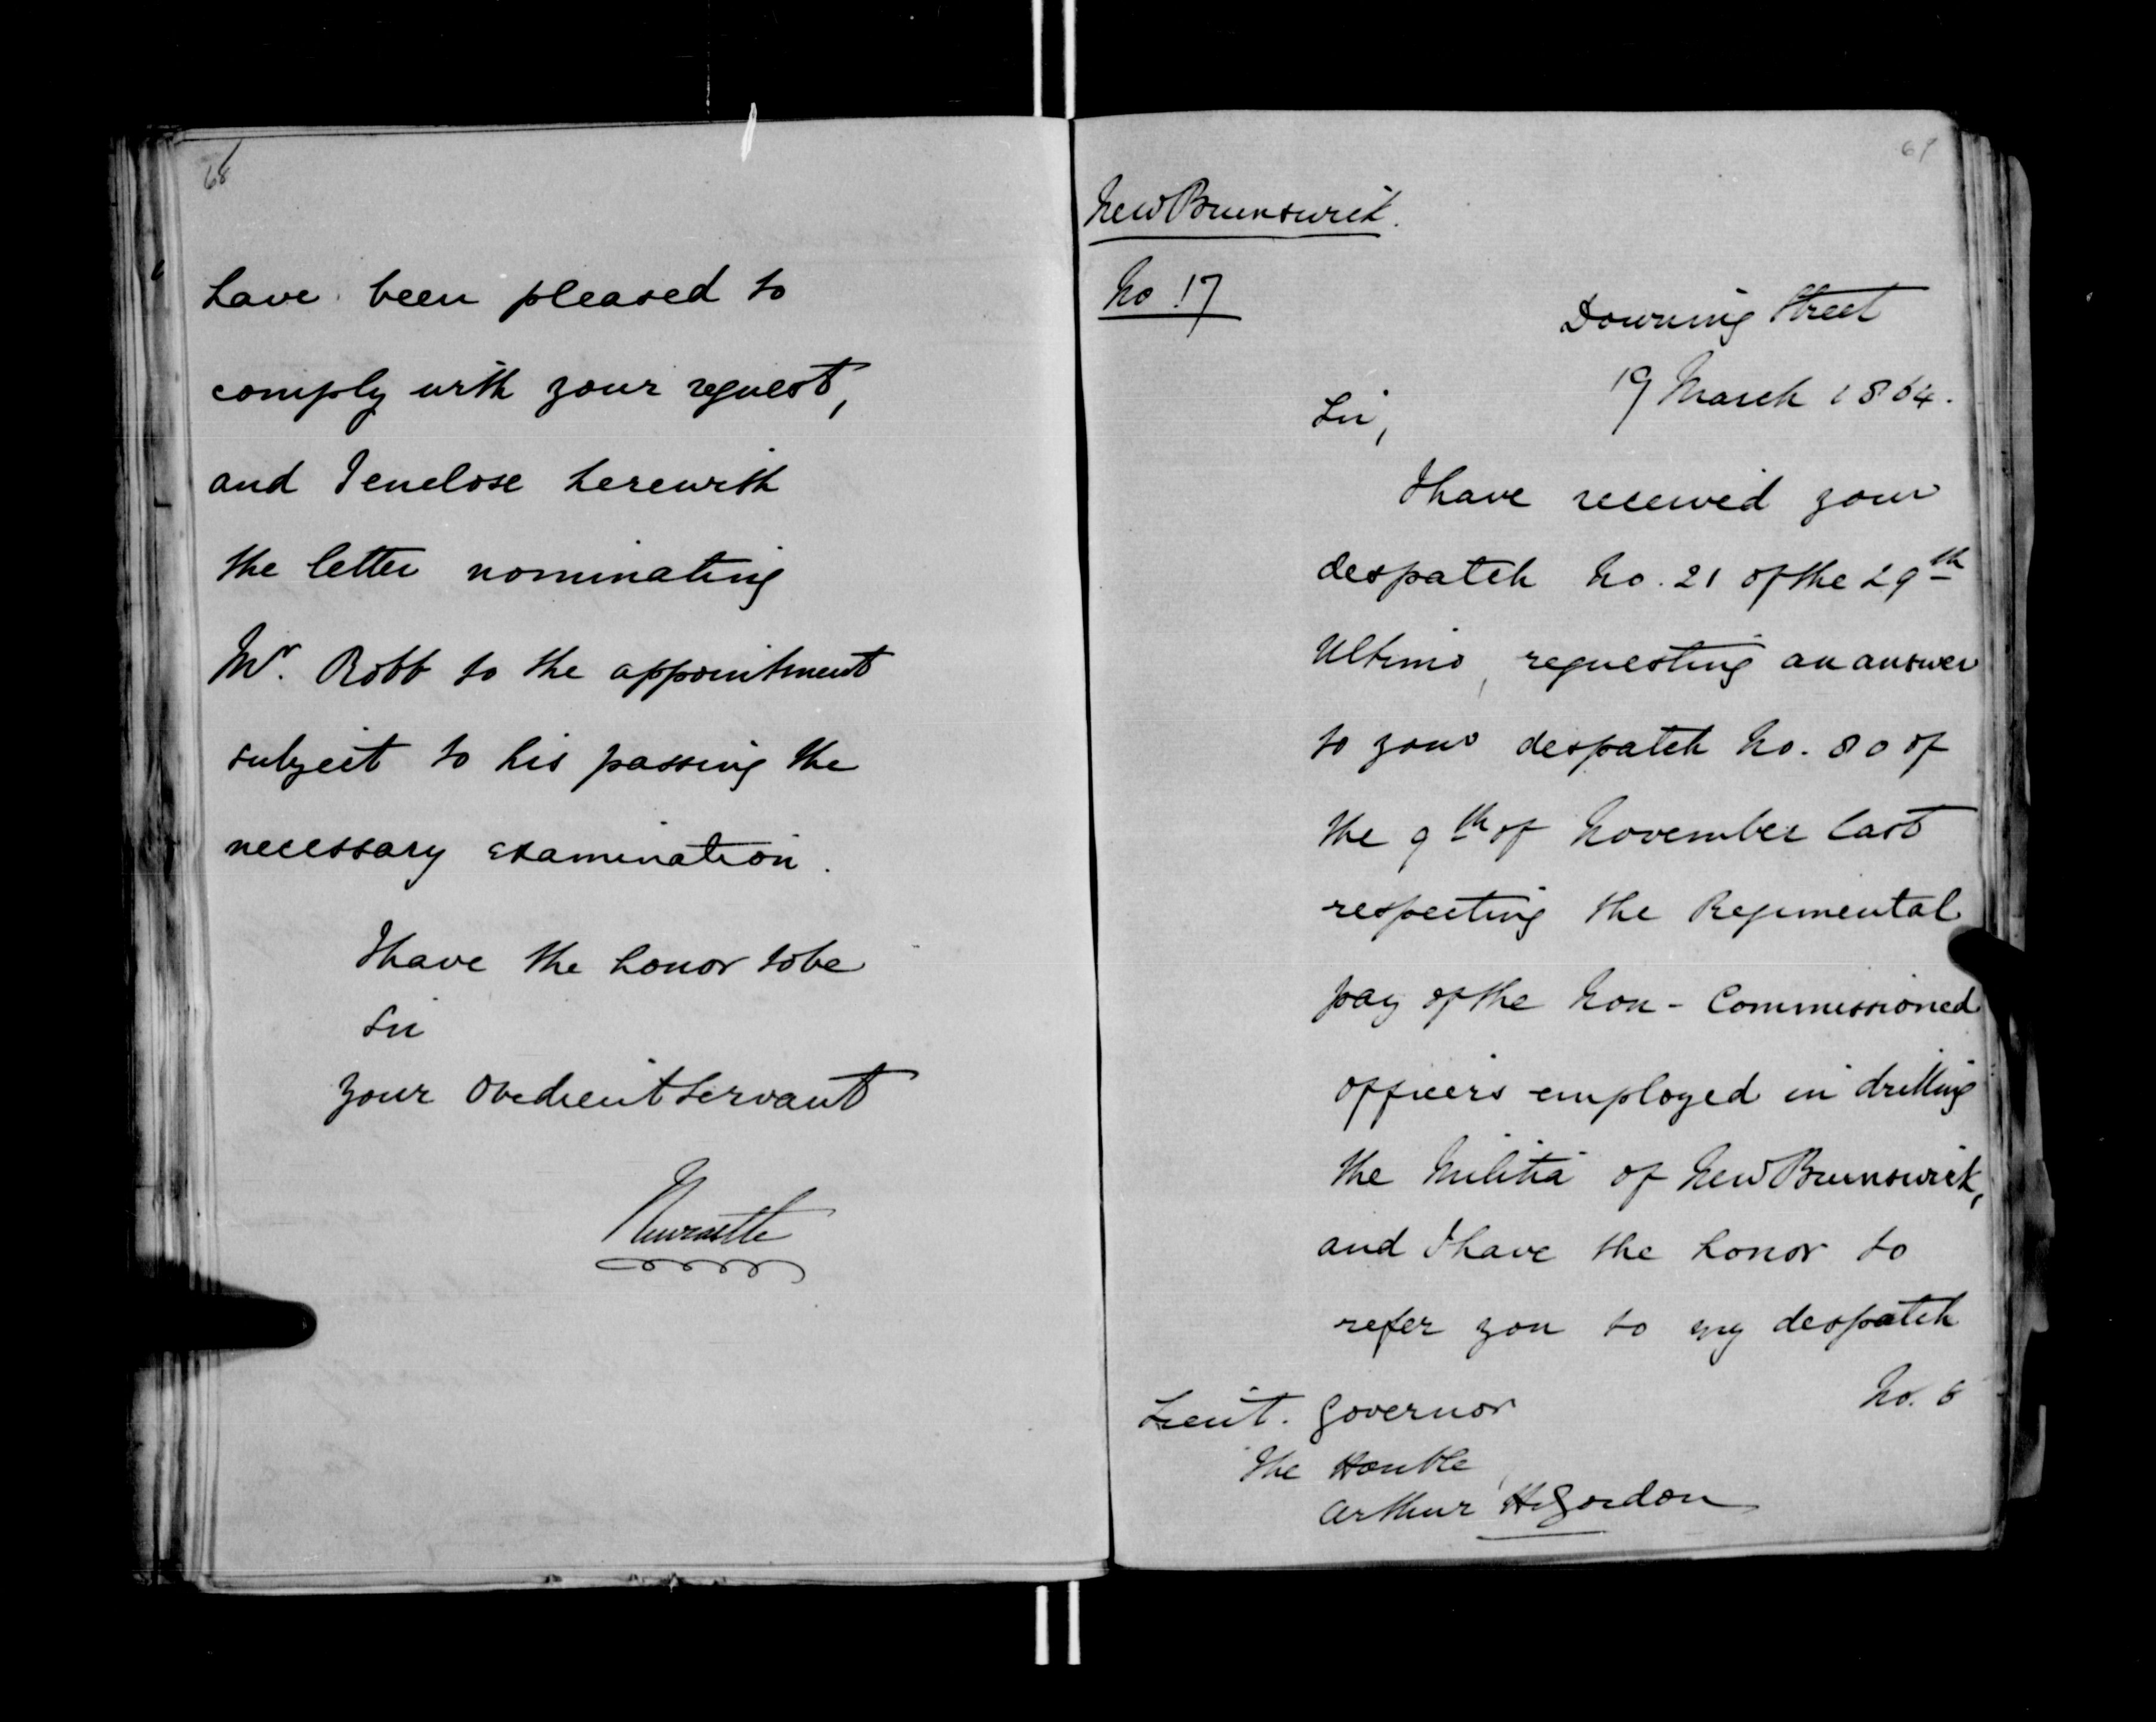 68
have been pleased to
comply with your request,
and I enclose herewith
the letter nominating
Mr. Robb to the appointment
subject to his passing the
necessary examination.
I have the honor to be
Sir
Your Obedient Servant
Newcastle
69
New Brunswick.
No 17
Downing Street
19 March 1864.
Sir,
I have received your
despatch No. 21 of the 29th
Ultimo, requesting an answer
to your despatch No. 80 of
the 9th of November last
respecting the Regimental
pay of the Non-Commissioned
officers employed in drilling
the Militia of New Brunswick,
and I have the honor to
refer you to my despatch
No. 6
Lieut. Governor
The Honble
Arthur H. Gordon